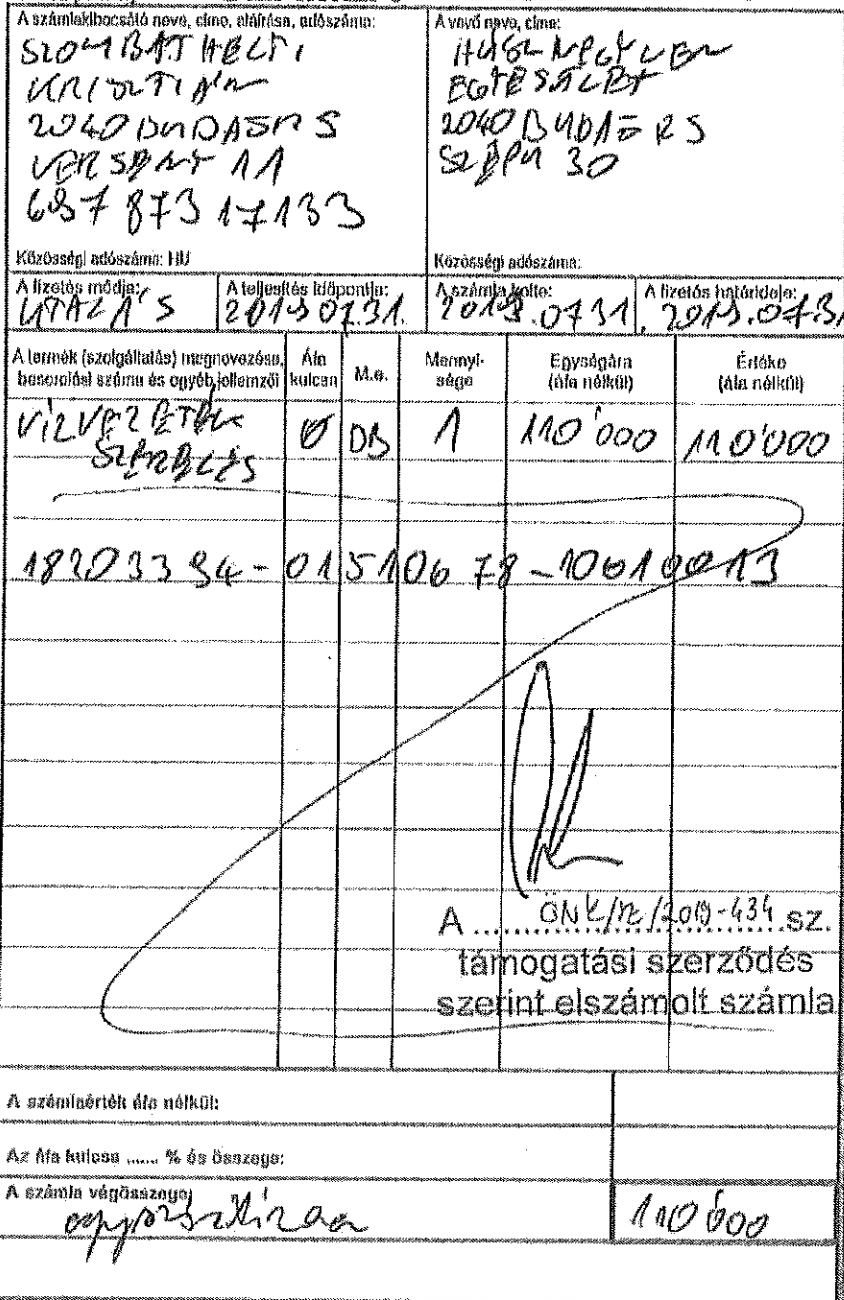 A számlakibocsátó neve, címe, aláírása, adószáma:
SZOMBATHELYI
KRISZTIÁN
2040 BUDAÖRS
VERSENY 11
69787317133
Közösségi adószáma: HU
A vevő neve, címe:
EGYESÜLET
2040 BUDAÖRS
30
Közösségi adószáma:
A fizetés módja:
UTALÁS
A teljesítés időpontja:
2019 07.31.
A számla kelte:
2019.07 31.
A fizetés határideje:
2019.07.31
A termék (szolgáltatás) megnevezése, besorolási száma és egyéb jellemzői
Áfa kulcsa
M.e.
Mennyisége
Egységára (áfa nélkül)
Értéke (áfa nélkül)
VÍZVEZETÉK 0 DB 1 110'000 110'000
SZERELÉS
18203394-01510678-10010013
A ÖNK/ /2019-434 sz.
támogatási szerződés
szerint elszámolt számla
A számlaérték áfa nélkül:
Az áfa kulcsa ...... % és összege:
A számla végösszege
110'000